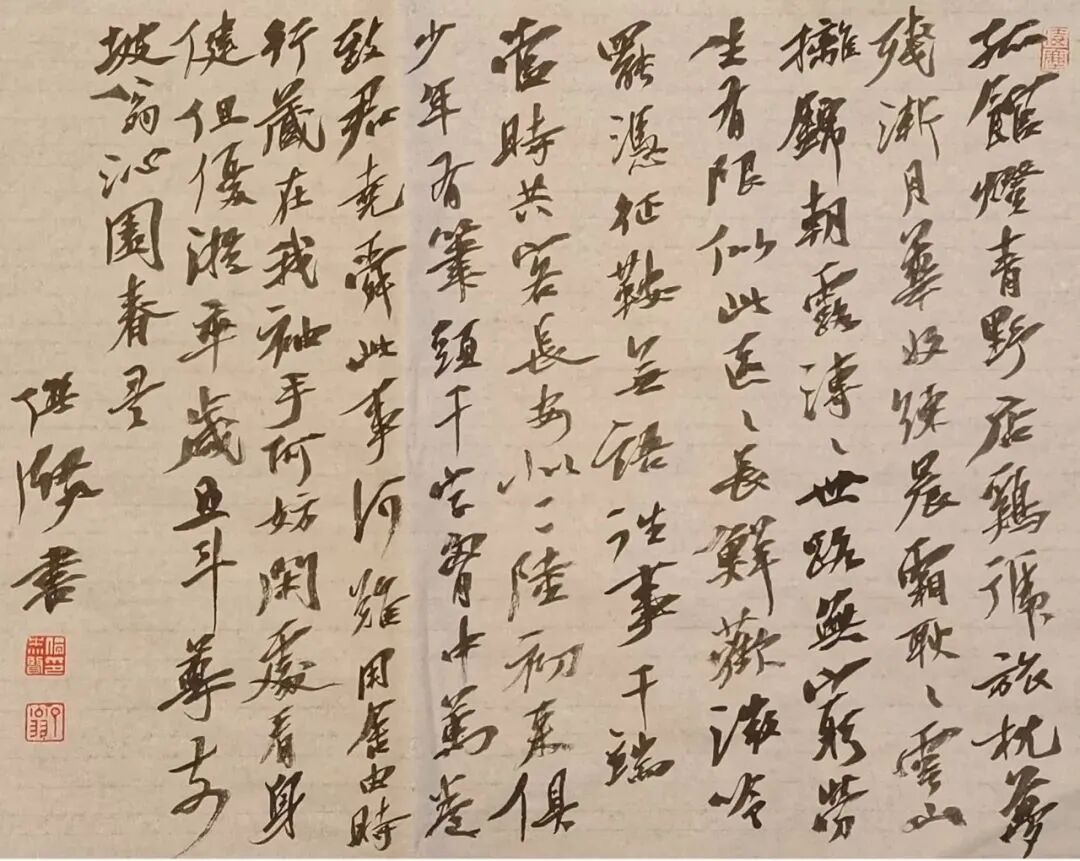 孤館燈青野店鷄號旅枕夢
殘漸月華收練晨霜耿〻雲山
摛錦朝露漙〻世路無窮勞
生有限似此區〻長鮮歡微吟
罷憑征鞍无語往事千端
當時共客長安似二陸初來俱
少年有筆頭千字胸中萬卷
致君堯舜此事何難用舍由時
行藏在我袖手何妨閑處看身
健但優游卒歲且斗尊前
坡翁沁園春
書